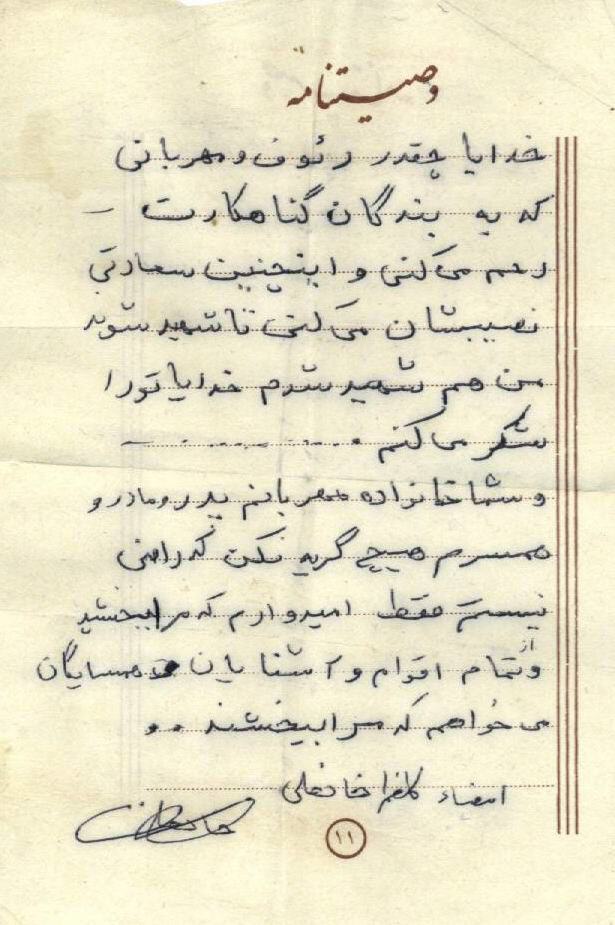 وصیتنامه
خدایا چقدر رئوف و مهربانی
که به بندگان گناهکارت –
رحم می‌کنی و اینچنین سعادتی
نصیبشان می‌کنی تا شهید شوند
من هم شهید شدم خدایا تو را
شکر می‌کنم
و شما خانواده مهربانم پدر و مادر و
همسرم هیچ گریه نکن که راضی
نیستم فقط امیدوارم که مرا ببخشید
و از تمام اقوام و آشنایان و همسایگان
می‌خواهم که مرا ببخشند ..
امضاء کاظم خانعلی
۱۱